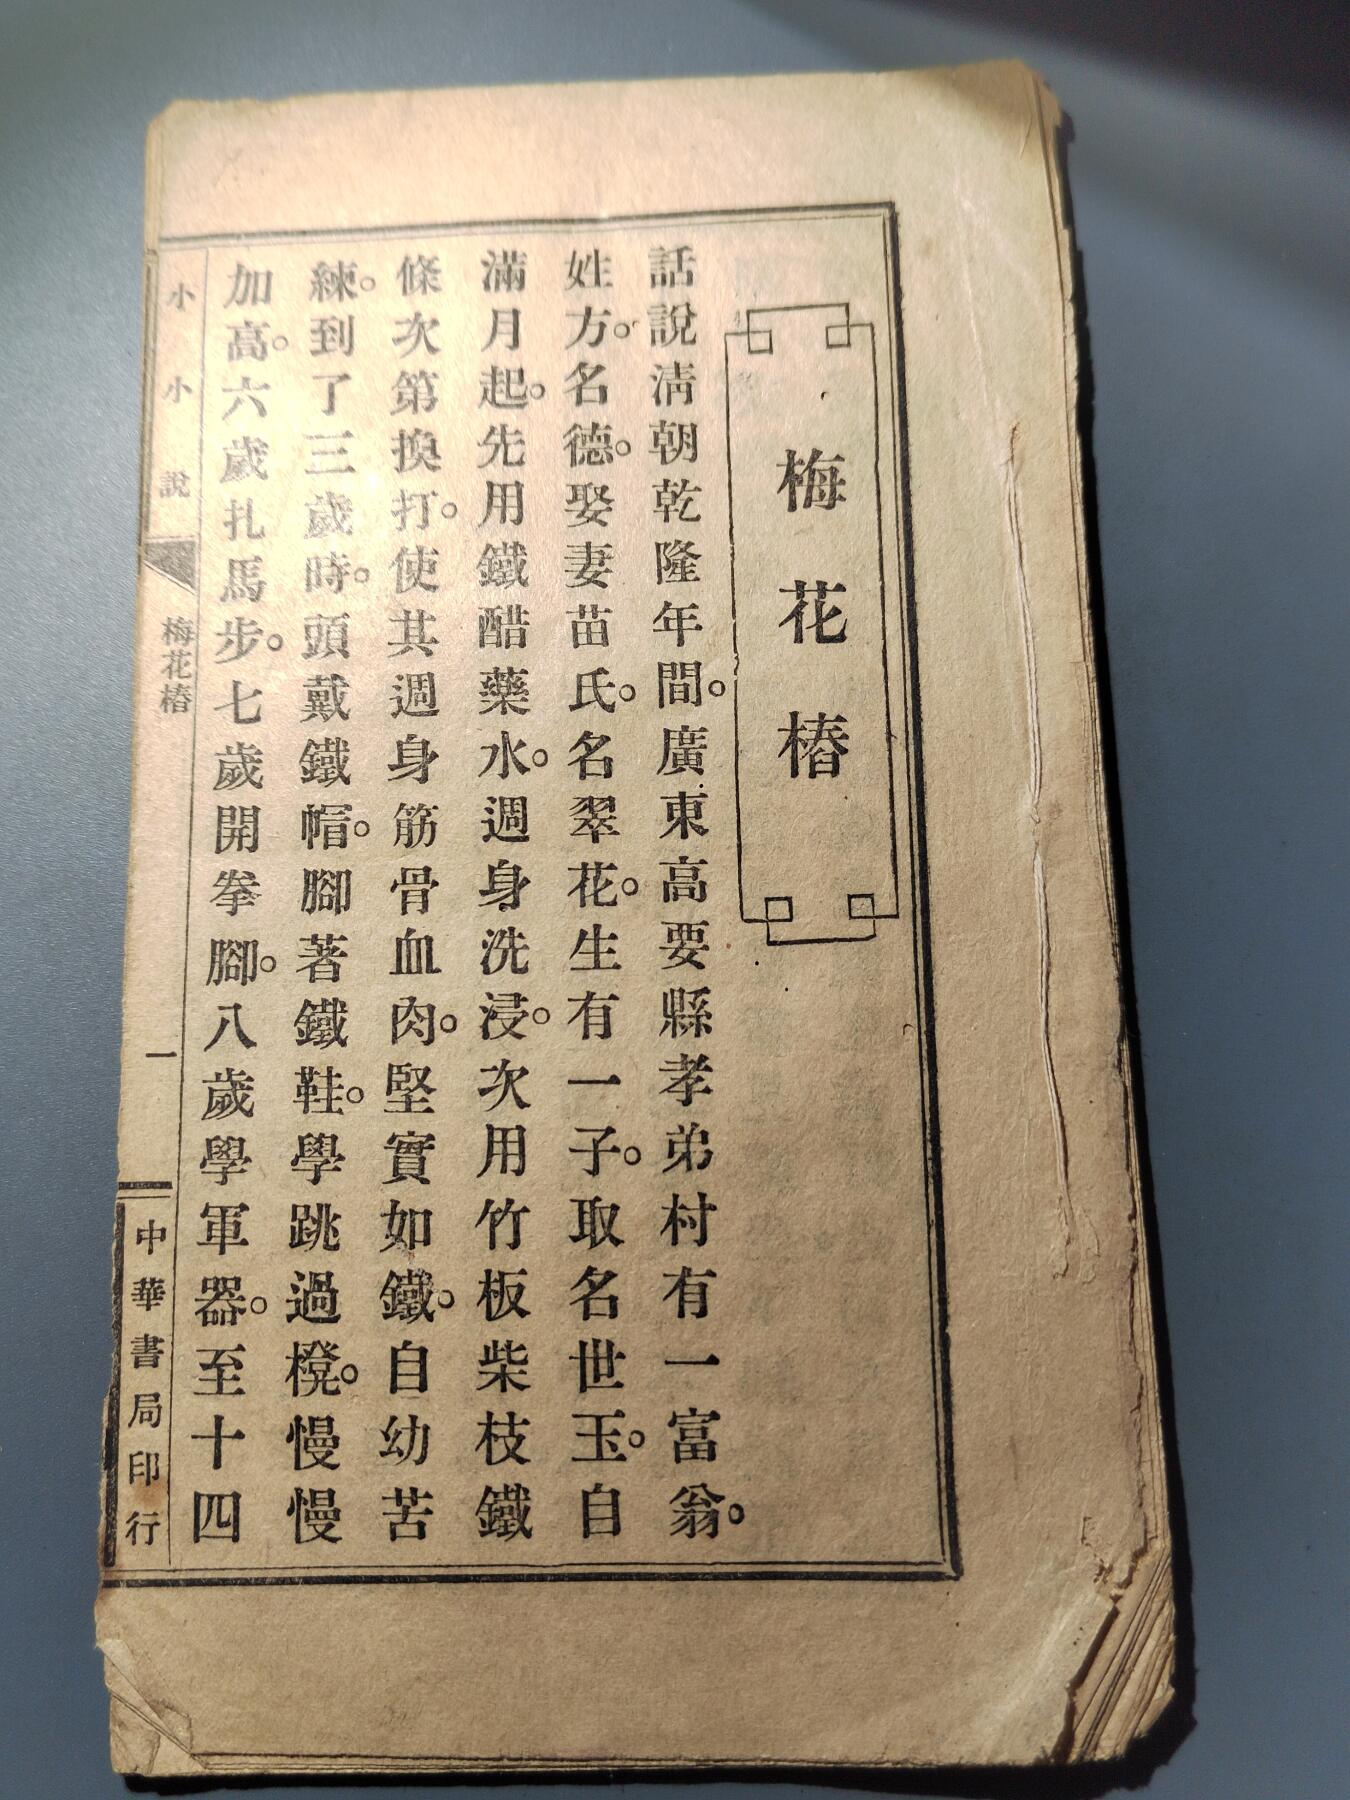 梅花樁
話說淸朝乾隆年間。廣東高要縣孝弟村有一富翁。
姓方。名德。娶妻苗氏。名翠花。生有一子。取名世玉。自
滿月起。先用鐵醋藥水。週身洗浸。次用竹板柴枝鐵
條次第換打。使其週身筋骨血肉。堅實如鐵。自幼苦
練。到了三歲時。頭戴鐵帽。腳著鐵鞋。學跳過櫈。慢慢
加高。六歲扎馬步。七歲開拳腳。八歲學軍器。至十四
小小說
梅花樁
一
中華書局印行